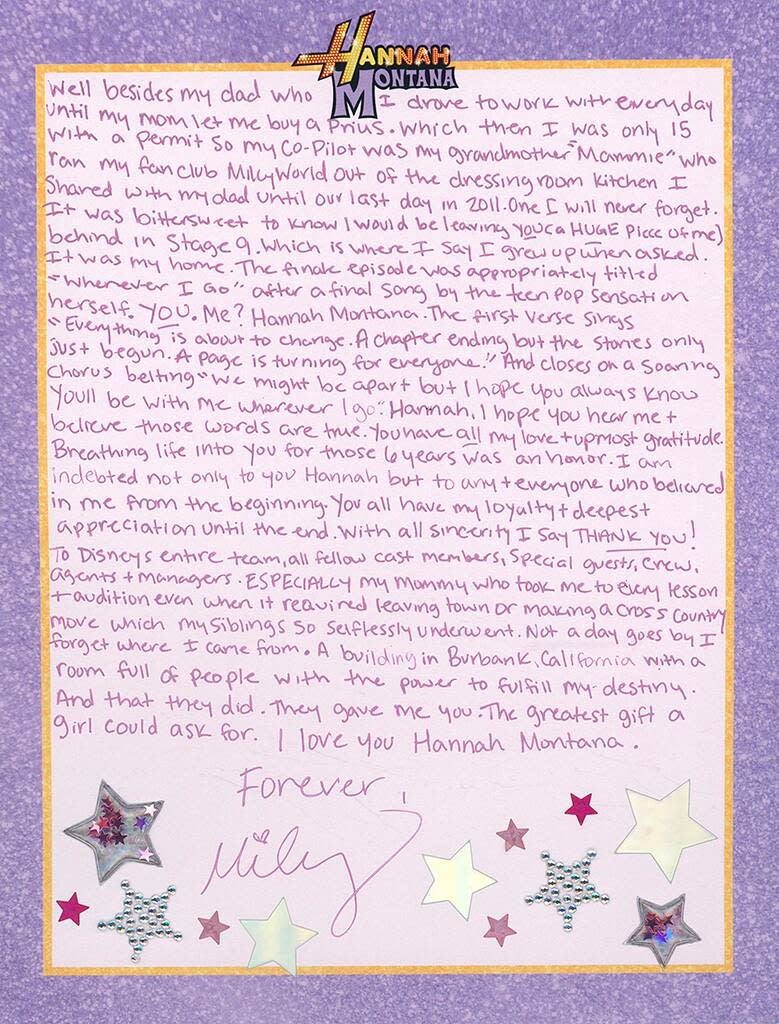 HANNAH
MONTANA
Well besides my dad who I drove to work with everyday
until my mom let me buy a Prius. Which then I was only 15
with a permit so my Co-Pilot was my grandmother "Mammie" who
ran my fanclub MileyWorld out of the dressing room kitchen I
Shared with my dad until our last day in 2011. One I will never forget.
It was bittersweet to know I would be leaving YOU (a HUGE Piece of me)
behind in Stage 9. Which is where I say I grew up when asked.
It was my home. The finale episode was appropriately titled
"Whenever I Go" after a final song by the teen pop sensation
herself. YOU. Me? Hannah Montana. The first verse sings
"Everything is about to change. A chapter ending but the stories only
just begun. A page is turning for everyone." And closes on a soaring
chorus belting "We might be apart but I hope you always know
Youll be with me wherever I go" Hannah, I hope you hear me +
believe those words are true. You have all my love + upmost gratitude.
Breathing life into you for those 6 years was an honor. I am
indebted not only to you Hannah but to any + everyone who believed
in me from the beginning. You all have my loyalty + deepest
appreciation until the end. With all sincerity I say THANK YOU!
To Disneys entire team, all fellow cast members, special guests, crew,
agents + managers. ESPECIALLY my Mommy who took me to every lesson
+ audition even when it required leaving town or making a cross country
move which my siblings so selflessly underwent. Not a day goes by I
forget where I came from. A building in Burbank, California with a
room full of people with the power to fulfill my destiny.
And that they did. They gave me you. The greatest gift a
girl could ask for. I love you Hannah Montana.
Forever,
Miley